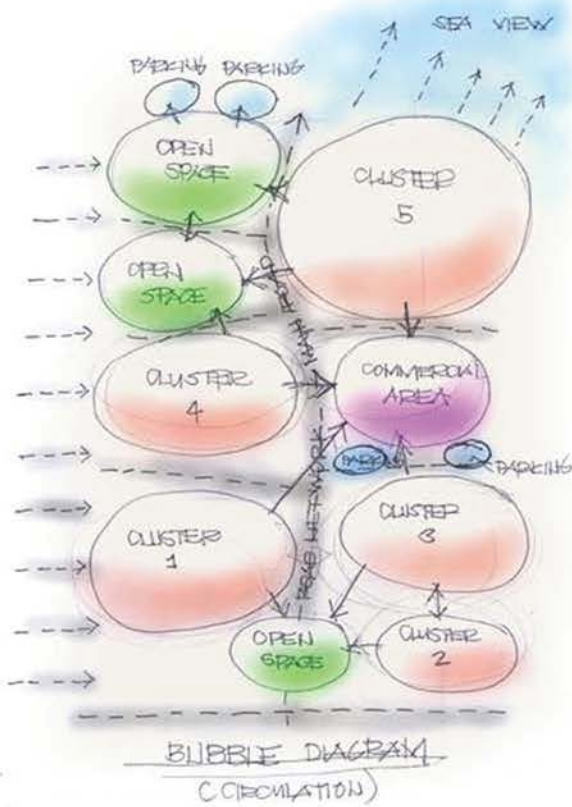 SEA VIEW
PARKING PARKING
OPEN
SPACE
CLUSTER
5
OPEN
SPACE
MAIN ROAD
CLUSTER
4
COMMERCIAL
AREA
PARK
PARKING
NETWORK
CLUSTER
1
CLUSTER
3
OPEN
SPACE
CLUSTER
2
BUBBLE DIAGRAM
(CIRCULATION)